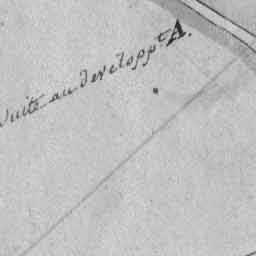 Suite au Developpt. A.